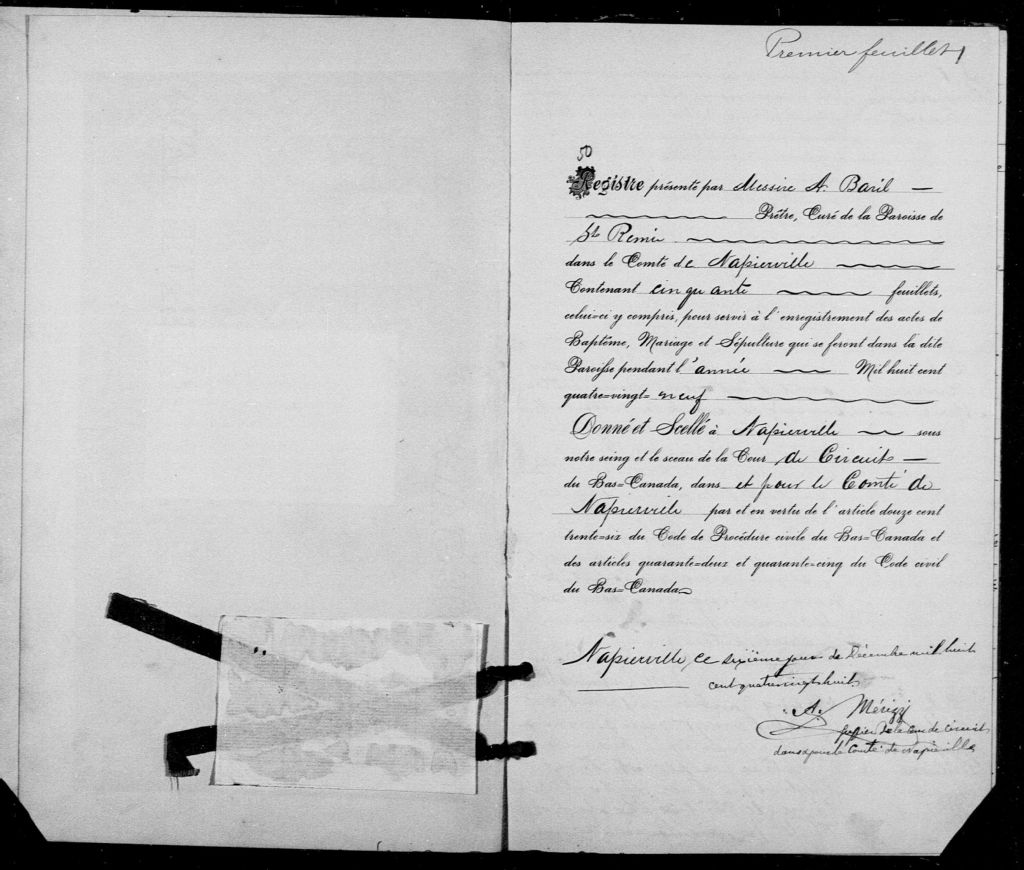 Premier feuillet
50
Registre présenté par Messire A. Baril
Prêtre, Curé de la Paroisse de
St Remie
dans le Comté de Napierville
Contenant cinquante feuillets,
celui=ci y compris, pour servir à l'enregistrement des actes de
Baptême, Mariage et Sépulture qui se feront dans la dite
Paroisse pendant l'année Mil huit cent
quatre=vingt= neuf
Donné et Scellé à Napierville sous
notre seing et le sceau de la Cour de Circuit
du Bas=Canada, dans et pour le Comté de
Napierville par et en vertu de l'article douze cent
trente=six du Code de Procédure civile du Bas=Canada et
des articles quarante=deux et quarante=cinq du Code civil
du Bas=Canada
Napierville, ce sixième jour de Décembre mil huit
cent quatrevingt huit.
A.
greffier de la Cour de Circuit
dans & pour le Comté de Napierville